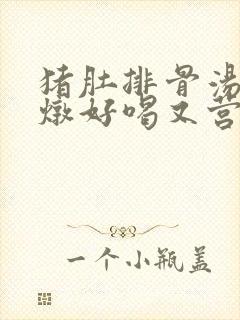 猪肚排骨汤
炖好喝又营
一个小瓶盖